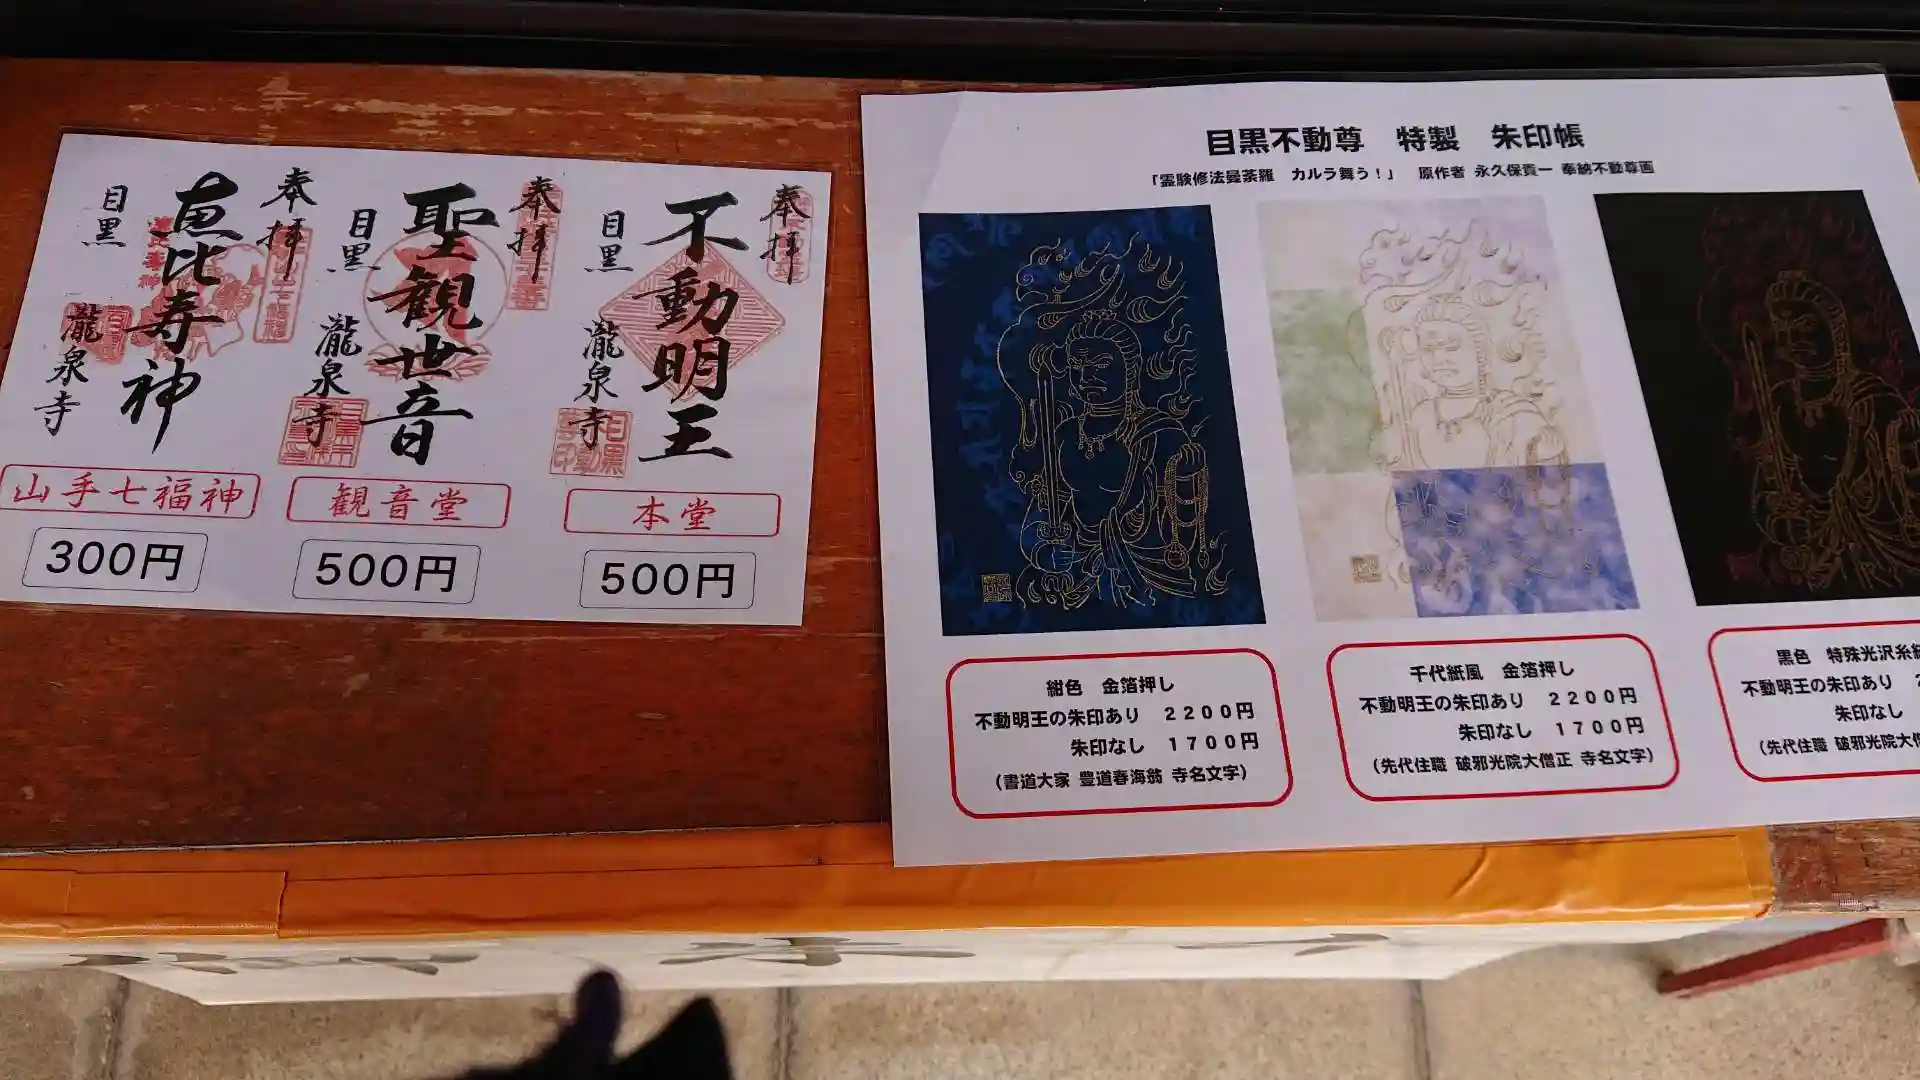 奉拝
不動明王
目黒
瀧泉寺
本堂
500円
奉拝
聖観世音
目黒
瀧泉寺
観音堂
500円
奉拝
恵比寿神
目黒
瀧泉寺
山手七福神
300円
目黒不動尊 特製 朱印帳
「霊験修法曼荼羅 カルラ舞う！」 原作者 永久保貴一 奉納不動尊画
紺色 金箔押し
不動明王の朱印あり 2200円
朱印なし 1700円
（書道大家 豊道春海翁 寺名文字）
千代紙風 金箔押し
不動明王の朱印あり 2200円
朱印なし 1700円
（先代住職 破邪光院大僧正 寺名文字）
黒色 特殊光沢糸
不動明王の朱印あり
朱印なし
（先代住職 破邪光院大